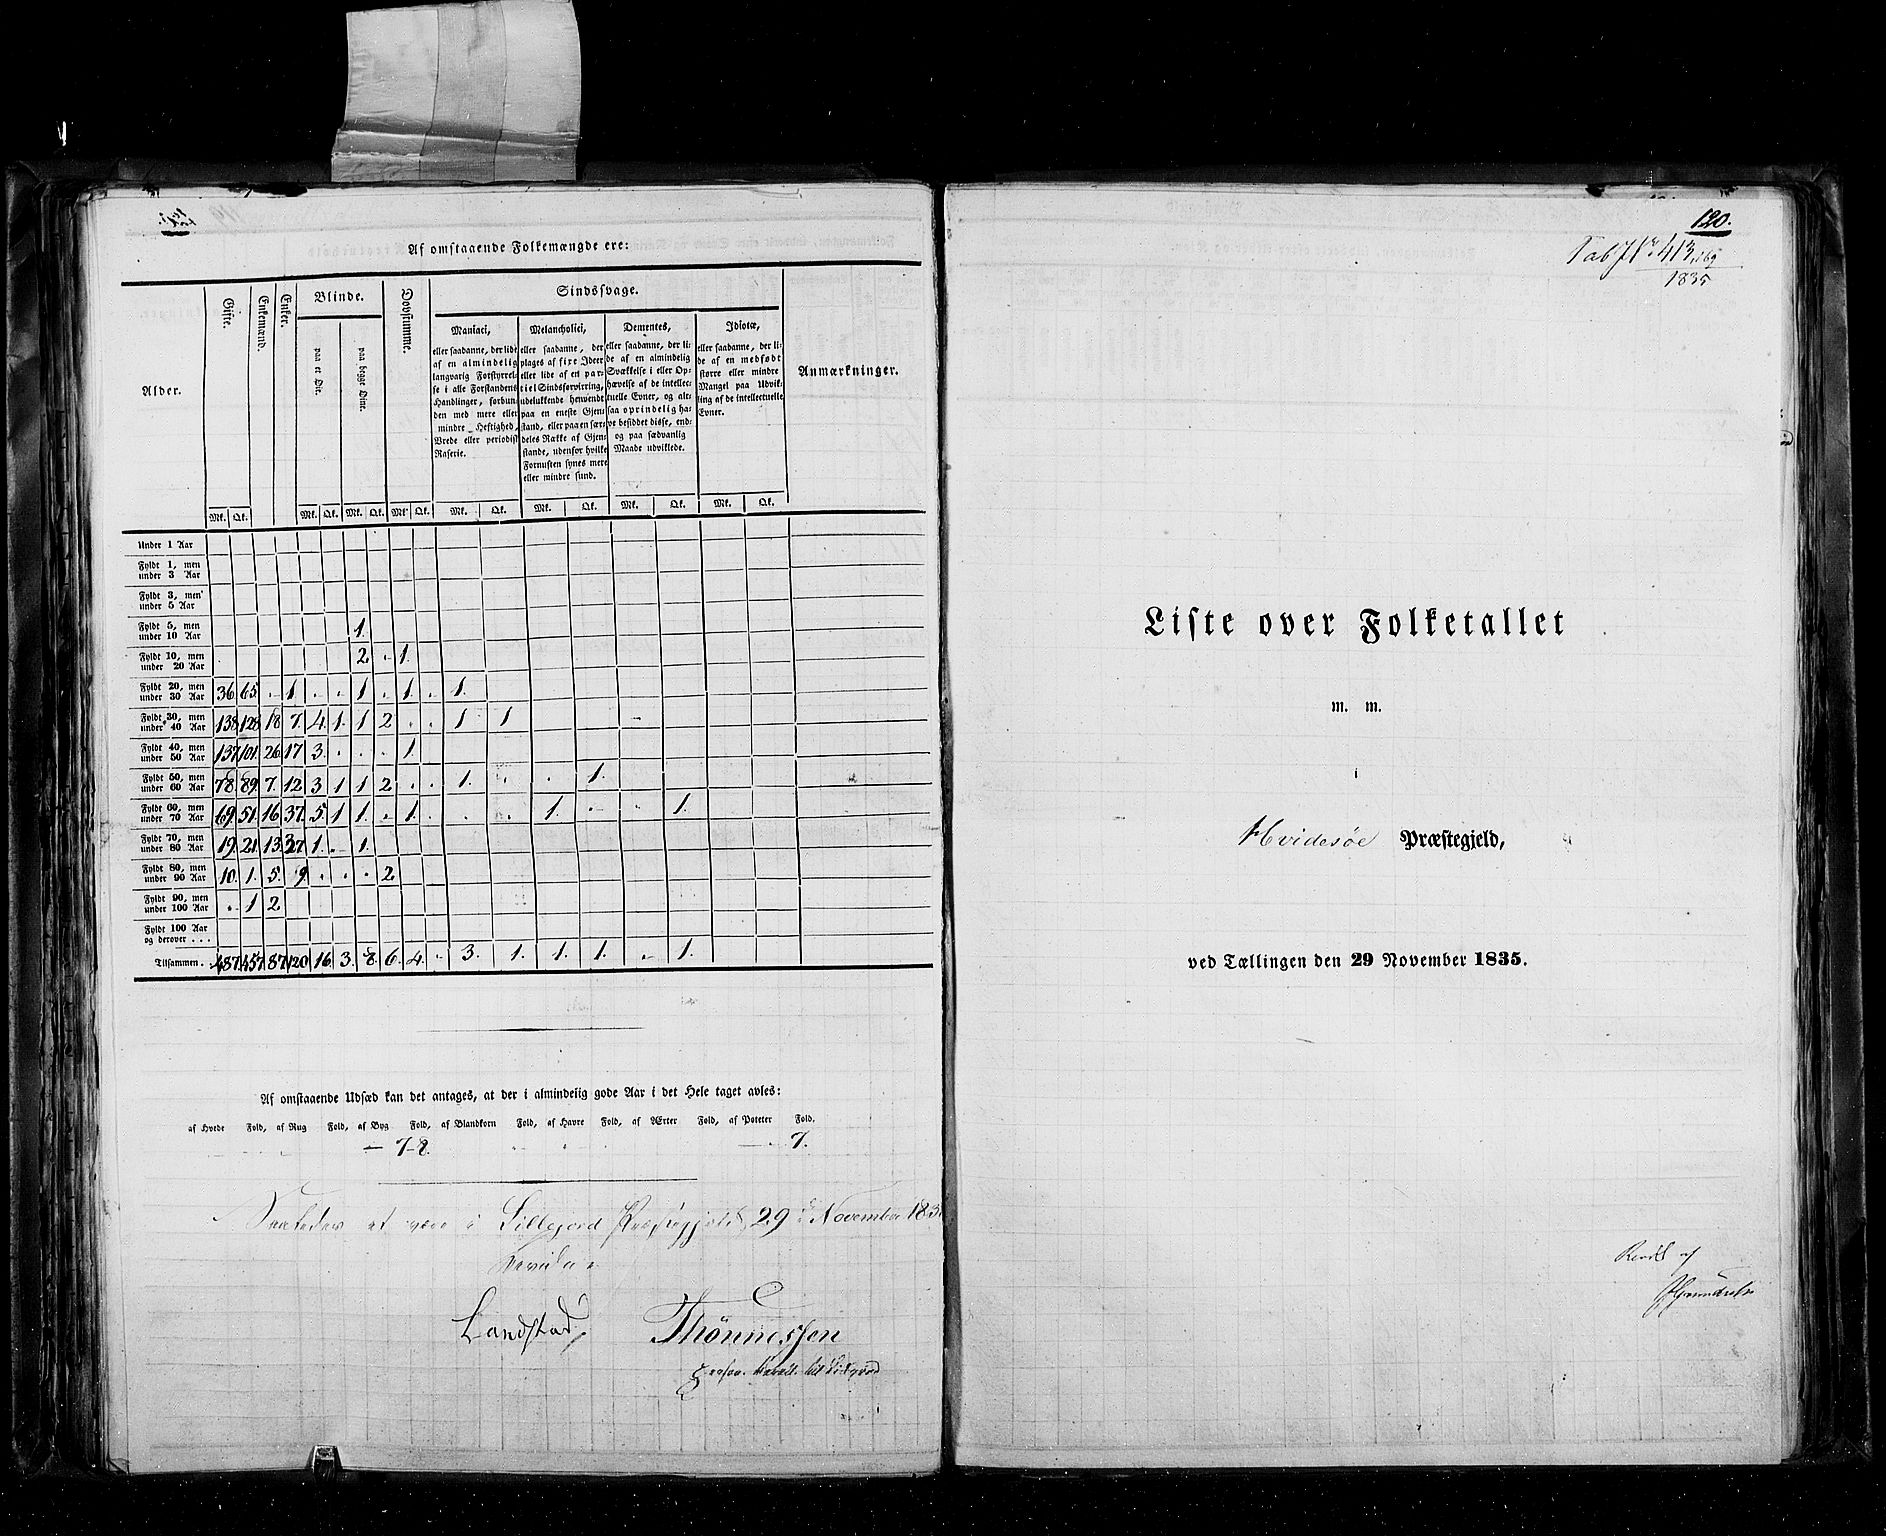 Af omstaaende Folkemængde ere:
Alder.
Gifte.
Enkemænd.
Enker.
Blinde.
paa et Øie.
paa begge Øine.
Døvstumme.
Sindssvage.
Maniaci,
eller saadanne, der lide
af en almindelig
langvarig Forstyrrel-
se i alle Forstandens
Handlinger, forbun-
den med mere eller
mindre Heftighed,
Vrede eller periodisk
Raserie.
Melancholici,
eller saadanne, der
plages af fixe Ideer
eller lide af en par-
tiel Sindsforvirring,
udelukkende henvendt
paa en eneste Gjen-
stand, eller paa en sær-
deles Række af Gjen-
stande, udenfor hvilke
Fornuften synes mere
eller mindre sund.
Dementes,
eller saadanne, der li-
de af en almindelig
Svækkelse i eller Op-
hævelse af de intellec-
tuelle Evner, og alt-
saa oprindelig ha-
ve besiddet disse, end-
og paa sædvanlig
Maade udviklede.
Idiotæ,
eller saadanne, der li-
de af en medfødt
større eller mindre
Mangel paa Udvik-
ling af de intellectuelle
Evner.
Anmærkninger.
Mk. Qk. Mk. Qk. Mk. Qk. Mk. Qk. Mk. Qk. Mk. Qk. Mk. Qk. Mk. Qk.
Under 1 Aar
Fyldt 1, men
under 3 Aar
Fyldt 3, men
under 5 Aar
Fyldt 5, men
under 10 Aar 1.
Fyldt 10, men
under 20 Aar 2 . 1.
Fyldt 20, men
under 30 Aar 36 65 . 1 . . 1 . 1 . 1.
Fyldt 30, men
under 40 Aar 138 128 18 7. 4. 1. 1 2 . . 1 1
Fyldt 40, men
under 50 Aar 137 101. 26 17 3. . . . 1
Fyldt 50, men
under 60 Aar 78. 89. 7. 12 3 1 1 2 . . 1. . . 1.
Fyldt 60, men
under 70 Aar 69. 51. 16 37. 5. 1 1. . 1. . . . 1. . . 1.
Fyldt 70, men
under 80 Aar 19. 21. 13. 37. 1. . 1.
Fyldt 80, men
under 90 Aar 10. 1. 5. 9. . . . 2
Fyldt 90, men
under 100 Aar . 1 2
Fyldt 100 Aar
og derover . . .
Tilsammen. 487. 457 87 120 16. 3. 8. 6. 4. . 3. 1. 1. 1. . 1.
Af omstaaende Udsæd kan det antages, at der i almindelig gode Aar i det Hele taget avles:
af Hvede Fold, af Rug Fold, af Byg Fold, af Blandkorn Fold, af Havre Fold, af Ærter Fold, af Poteter Fold.
— 7-8. — 7.
at være i Præstegjeld 29 d November
Landstad, Thönnessen
120.
1835
Liste over Folketallet
m. m.
i
Hvidesøe Præstegjeld,
ved Tællingen den 29 November 1835.
af